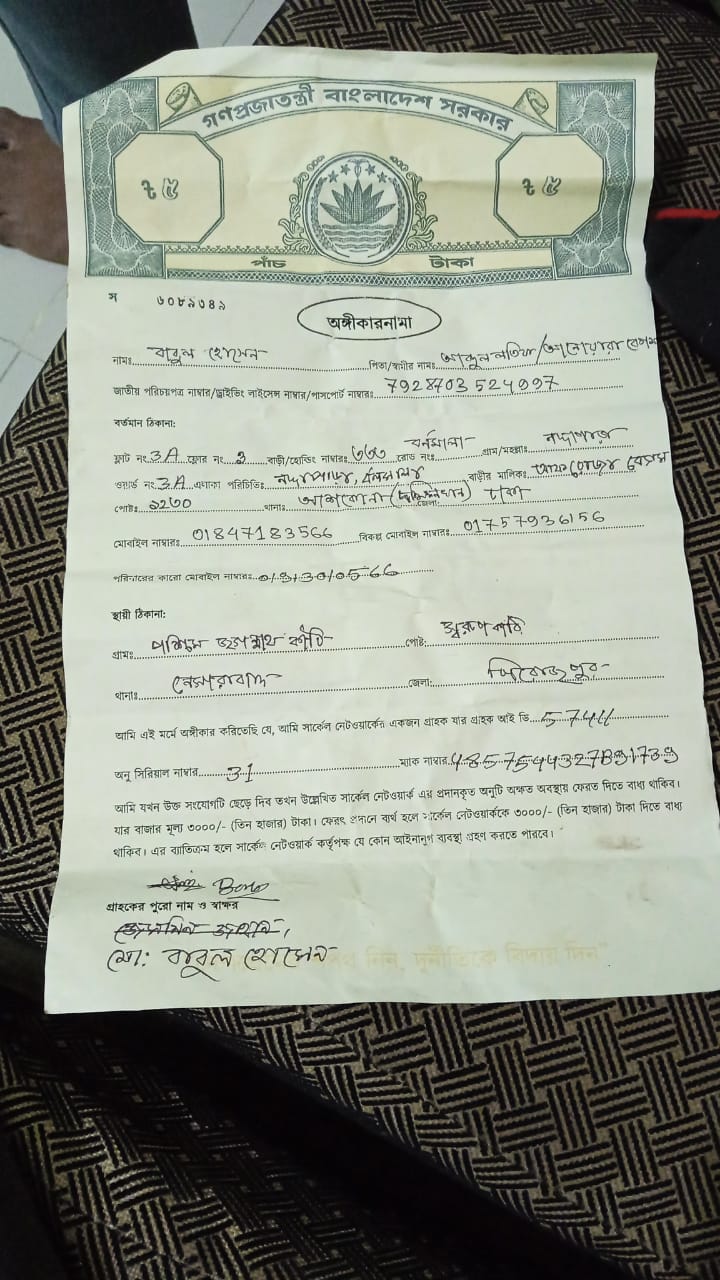 গণপ্রজাতন্ত্রী বাংলাদেশ সরকার
৳ ৫ ৳ ৫
পাঁচ টাকা
স ৬০৮৯৩৪৯
অঙ্গীকারনামা
নামঃ বাবুল হোসেন পিতা/স্বামীর নামঃ আব্দুল লতিফ/আনোয়ারা বেগম
জাতীয় পরিচয়পত্র নাম্বার/ড্রাইভিং লাইসেন্স নাম্বার/পাসপোর্ট নাম্বারঃ 7928703524997
বর্তমান ঠিকানা:
ফ্লাট নং 3A ফ্লোর নং 3 বাড়ী/হোল্ডিং নাম্বারঃ ৩৬৩ রোড নংঃ গ্রাম/মহল্লাঃ
ওয়ার্ড নং 3A এলাকা পরিচিতিঃ বাড়ীর মালিকঃ বেগম
পোষ্টঃ ১২৩০ থানাঃ আশকোনা (দক্ষিনখান) জেলা: ঢাকা
মোবাইল নাম্বারঃ 01847183566 বিকল্প মোবাইল নাম্বারঃ 01757936156
পরিবারের কারো মোবাইল নাম্বারঃ
স্থায়ী ঠিকানা:
গ্রামঃ পশ্চিম জগন্নাথ কাঠি পোষ্ট: স্বরুপকাঠি
থানাঃ নেসারাবাদ জেলা: পিরোজপুর
আমি এই মর্মে অঙ্গীকার করিতেছি যে, আমি সার্কেল নেটওয়ার্কের একজন গ্রাহক যার গ্রাহক আই ডি 5744
অনু সিরিয়াল নাম্বার 31 ম্যাক নাম্বার
আমি যখন উক্ত সংযোগটি ছেড়ে দিব তখন উল্লেখিত সার্কেল নেটওয়ার্ক এর প্রদানকৃত অনুটি অক্ষত অবস্থায় ফেরত দিতে বাধ্য থাকিব।
যার বাজার মূল্য ৩০০০/- (তিন হাজার) টাকা। ফেরৎ প্রদানে ব্যর্থ হলে সার্কেল নেটওয়ার্ককে ৩০০০/- (তিন হাজার) টাকা দিতে বাধ্য
থাকিব। এর ব্যতিক্রম হলে সার্কেল নেটওয়ার্ক কর্তৃপক্ষ যে কোন আইনানুগ ব্যবস্থা গ্রহণ করতে পারবে।
গ্রাহকের পুরো নাম ও স্বাক্ষর
মো: বাবুল হোসেন
নিন, দুর্নীতিকে বিদায় দিন"